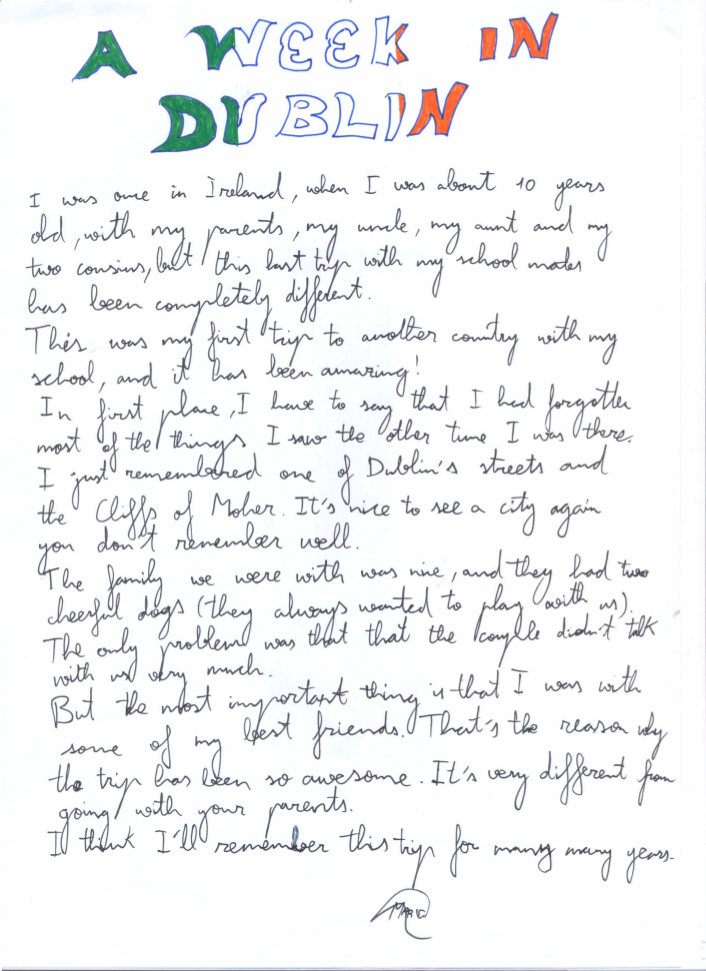 A WEEK IN
DUBLIN
I was once in Ireland, when I was about 10 years
old, with my parents, my uncle, my aunt and my
two cousins, but this last trip with my school mates
has been completely different.
This was my first trip to another country with my
school, and it has been amazing!
In first place, I have to say that I had forgotten
most of the things I saw the other time I was there.
I just remembered one of Dublin's streets and
the Cliffs of Moher. It's nice to see a city again
you don't remember well.
The family we were with was nice, and they had two
cheerful dogs (they always wanted to play with us).
The only problem was that that the couple didn't talk
with us very much.
But the most important thing is that I was with
some of my best friends. That's the reason why
the trip has been so awesome. It's very different from
going with your parents.
I think I'll remember this trip for many many years.